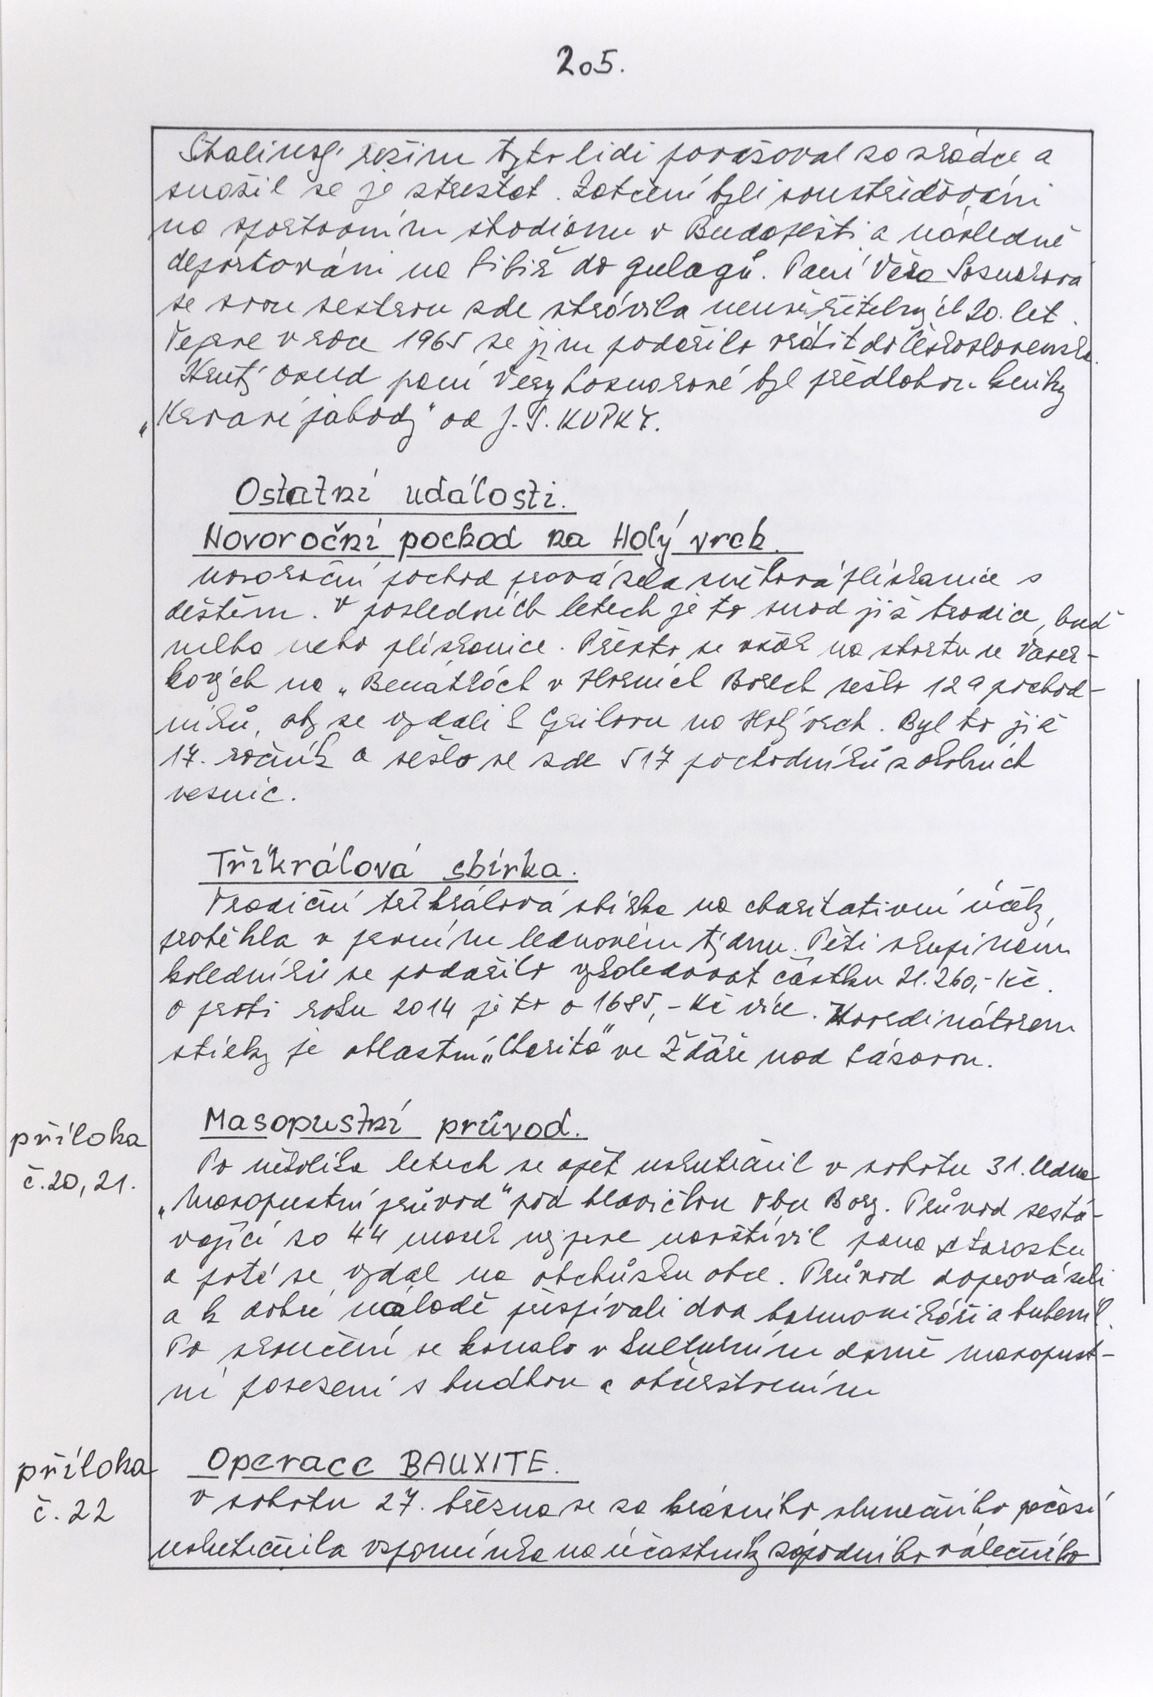 205.
Stalinský režim tyto lidi považoval za zrádce a
snažil se je ztrestat. Zatčení byli soustřeďováni
na sportovním stadionu v Budapešti a následně
deportováni na Sibiř do gulagů. Paní Věra Sosnarová
se svou sestrou zde strávila neuvěřitelných 20. let.
Teprve v roce 1965 se jim podařilo vrátit do Československa.
Krutý osud paní Věry Sosnarové byl předlohou knihy
„Krvavé jahody" od J. S. KUPKY.
Ostatní události.
Novoroční pochod na Holý vrch.
Novoroční pochod provázela sněhová plískanice s
deštěm. V posledních letech je to snad již tradice, buď
mlha nebo plískanice. Přesto se však na startu u
kových na „Benátkách v Horních Borech sešlo 129 pochod-
níků, aby se vydali k Grilovu na Holý vrch. Byl to již
17. ročník a sešlo se zde 517 pochodníků z okolních
vesnic.
Tříkrálová sbírka.
Tradiční tříkrálová sbírka na charitativní účely,
proběhla v prvním lednovém týdnu. Pěti skupinám
koledníků se podařilo vykoledovat částku 21.260,- Kč.
O proti roku 2014 je to o 1685,- Kč více. Koordinátorem
sbírky je oblastní „Charita" ve Žďáře nad Sázavou.
příloha
č. 20, 21.
Masopustní průvod.
Po několika letech se opět uskutečnil v sobotu 31. ledna
„Masopustní průvod" pod hlavičkou Obce Bory. Průvod sestá-
vající ze 44 masek nejprve navštívil pana starostu
a poté se vydal na obchůzku obce. Průvod doprovázeli
a k dobré náladě přispívali dva harmonikáři a bubeník.
Po skončení se konalo v kulturním domě masopust-
ní posezení s hudbou a občerstvením
příloha
č. 22
Operace BAUXITE.
V sobotu 27. března se za krásného slunečného počasí
uskutečnila vzpomínka na účastníky západního válečného